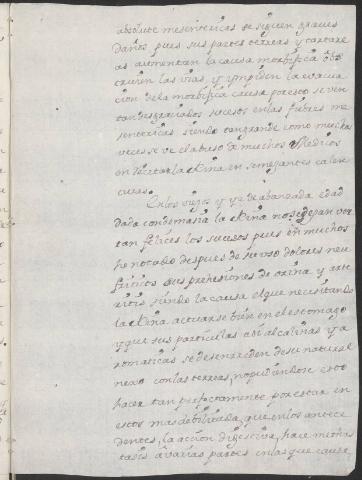 absolute mesentericas se siguen graves
daños pues sus partes terreas y tartare
as aumentan la causa morbifica obs
truien las vias, y ympiden la evacua
cion de la morbifica causa por esto se ven
tan desgraciados sucesos en las fiebres me
sentericas siendo tan grande como muchas
veces se ve el abuso de muchos Medicos
en recetar la Kina en semejantes calen
turas.
En los viejos y ya de abanzada edad
dada con demasia la Kina no se dejan ver
tan felices los sucesos pues en muchos
he notado despues de su uso dolores neu
friticos supresiones de orina y artr
ritis siendo la causa el que necesitando
la Kina actuarse bien en el estomago
y que sus particulas asi alcalinas ya
romaticas se desenreden de su natural
nexo con las terreas, no pudiendose esto
hacer tan perfectamente por estar en
estos mas debilitada, que en los antece
dentes, la accion digestiva, hace metas
tasis a varias partes en las que causa